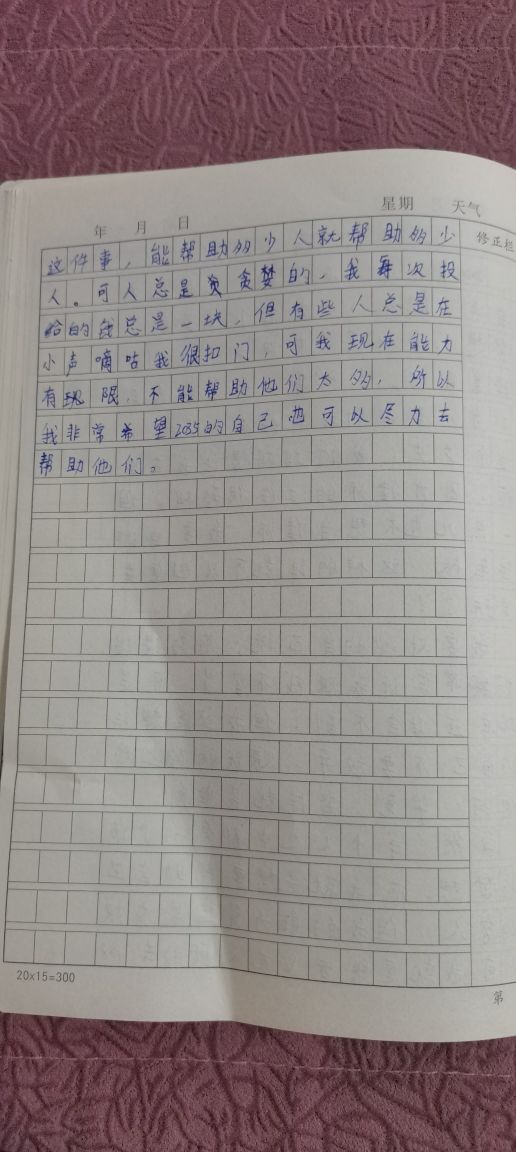 年 月 日 星期 天气
修正栏
这件事，能帮助多少人就帮助多少
人。可人总是贪婪的，我每次投
给的钱总是一块，但有些人总是在
小声嘀咕我很扣门，可我现在能力
有限，不能帮助他们太多，所以
我非常希望2035的自己也可以尽力去
帮助他们。
20x15=300
第